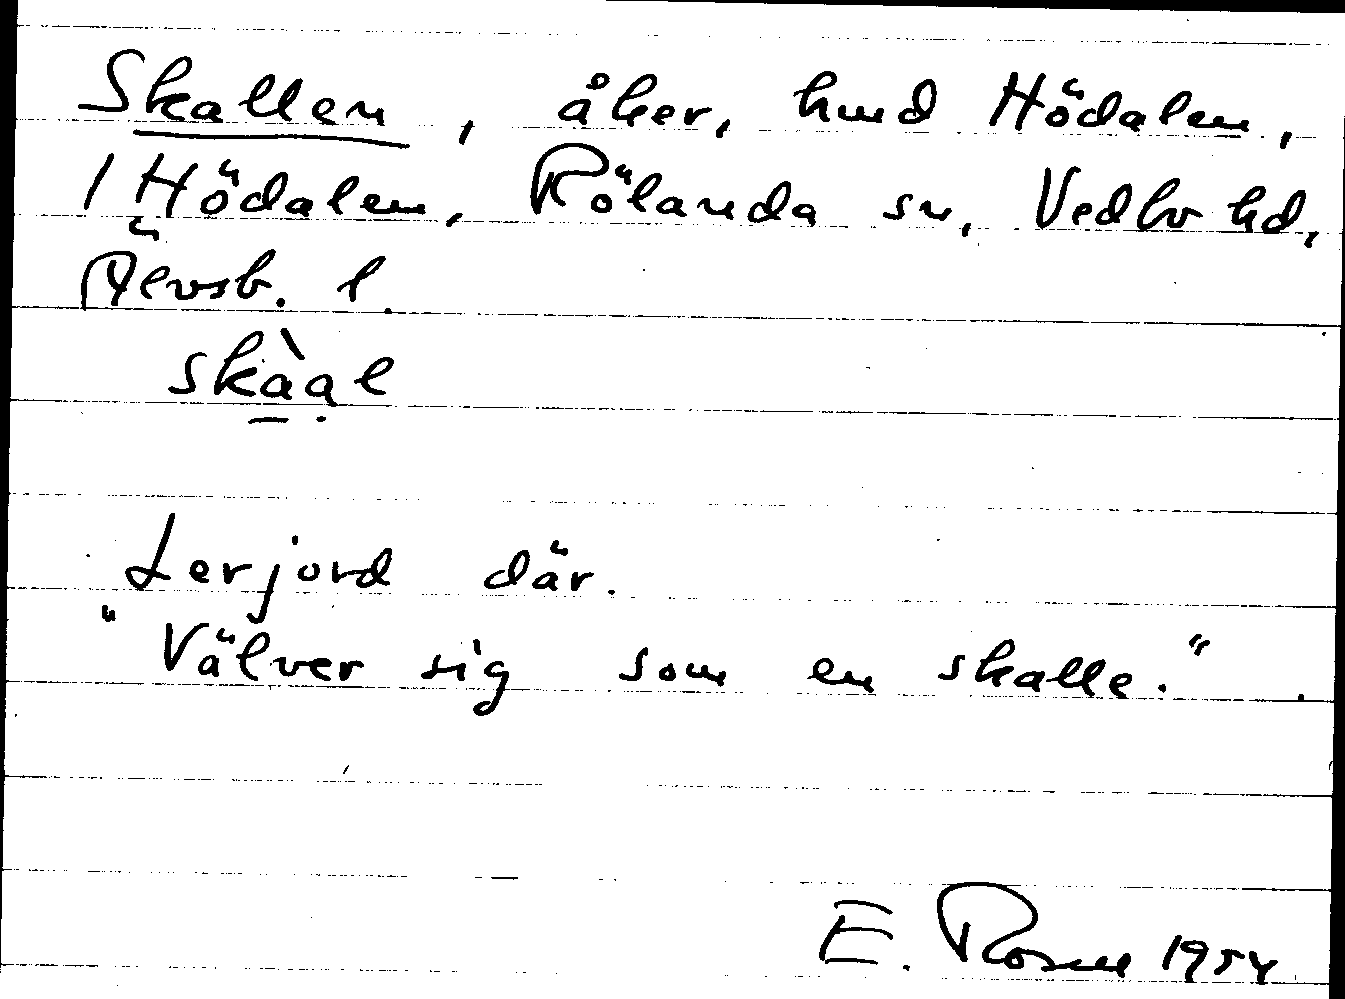 Skallen, åker, hmd Hödalen,
1 Hödalen, Rölanda sn, Vedbo hd,
Älvsb. l.
skàal
Lerjord där.
"Välver sig som en skalle."
E. Rosell 1954